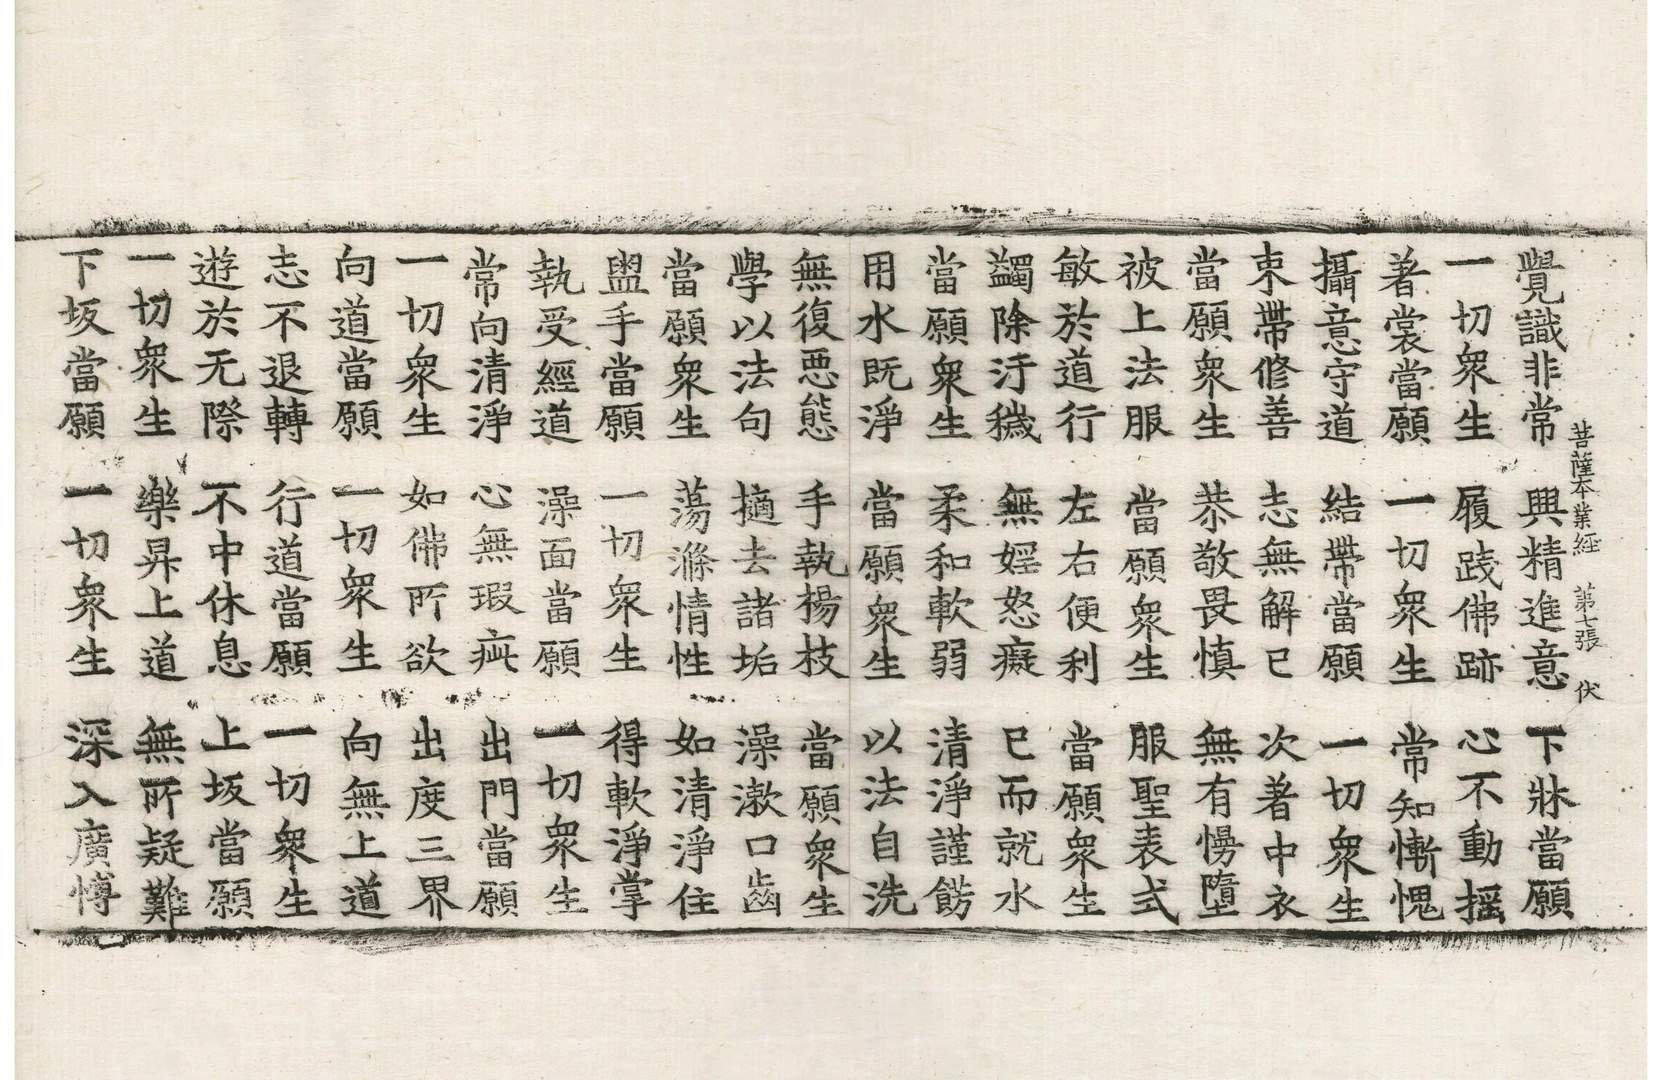 菩薩本業経 第七張 伏
覺識非常 興精進意 下牀當願
一切衆生 履踐佛跡 心不動揺
著裳當願 一切衆生 常知慚愧
攝意守道 結帶當願 一切衆生
束帶修善 志無解已 次著中衣
當願衆生 恭敬畏慎 無有慢墮
被上法服 當願衆生 服聖表式
敏於道行 左右便利 當願衆生
蠲除汙穢 無婬怒癡 已而就水
當願衆生 柔和軟弱 清淨謹飭
用水既淨 當願衆生 以法自洗
無復悪態 手執楊枝 當願衆生
學以法句 擿去諸垢 澡漱口齒
當願衆生 蕩滌情性 如清淨住
盥手當願 一切衆生 得軟淨掌
執受經道 澡面當願 一切衆生
常向清淨 心無瑕疵 出門當願
一切衆生 如佛所欲 出度三界
向道當願 一切衆生 向無上道
志不退轉 行道當願 一切衆生
遊於无際 不中休息 上坂當願
一切衆生 樂昇上道 無所疑難
下坂當願 一切衆生 深入廣博